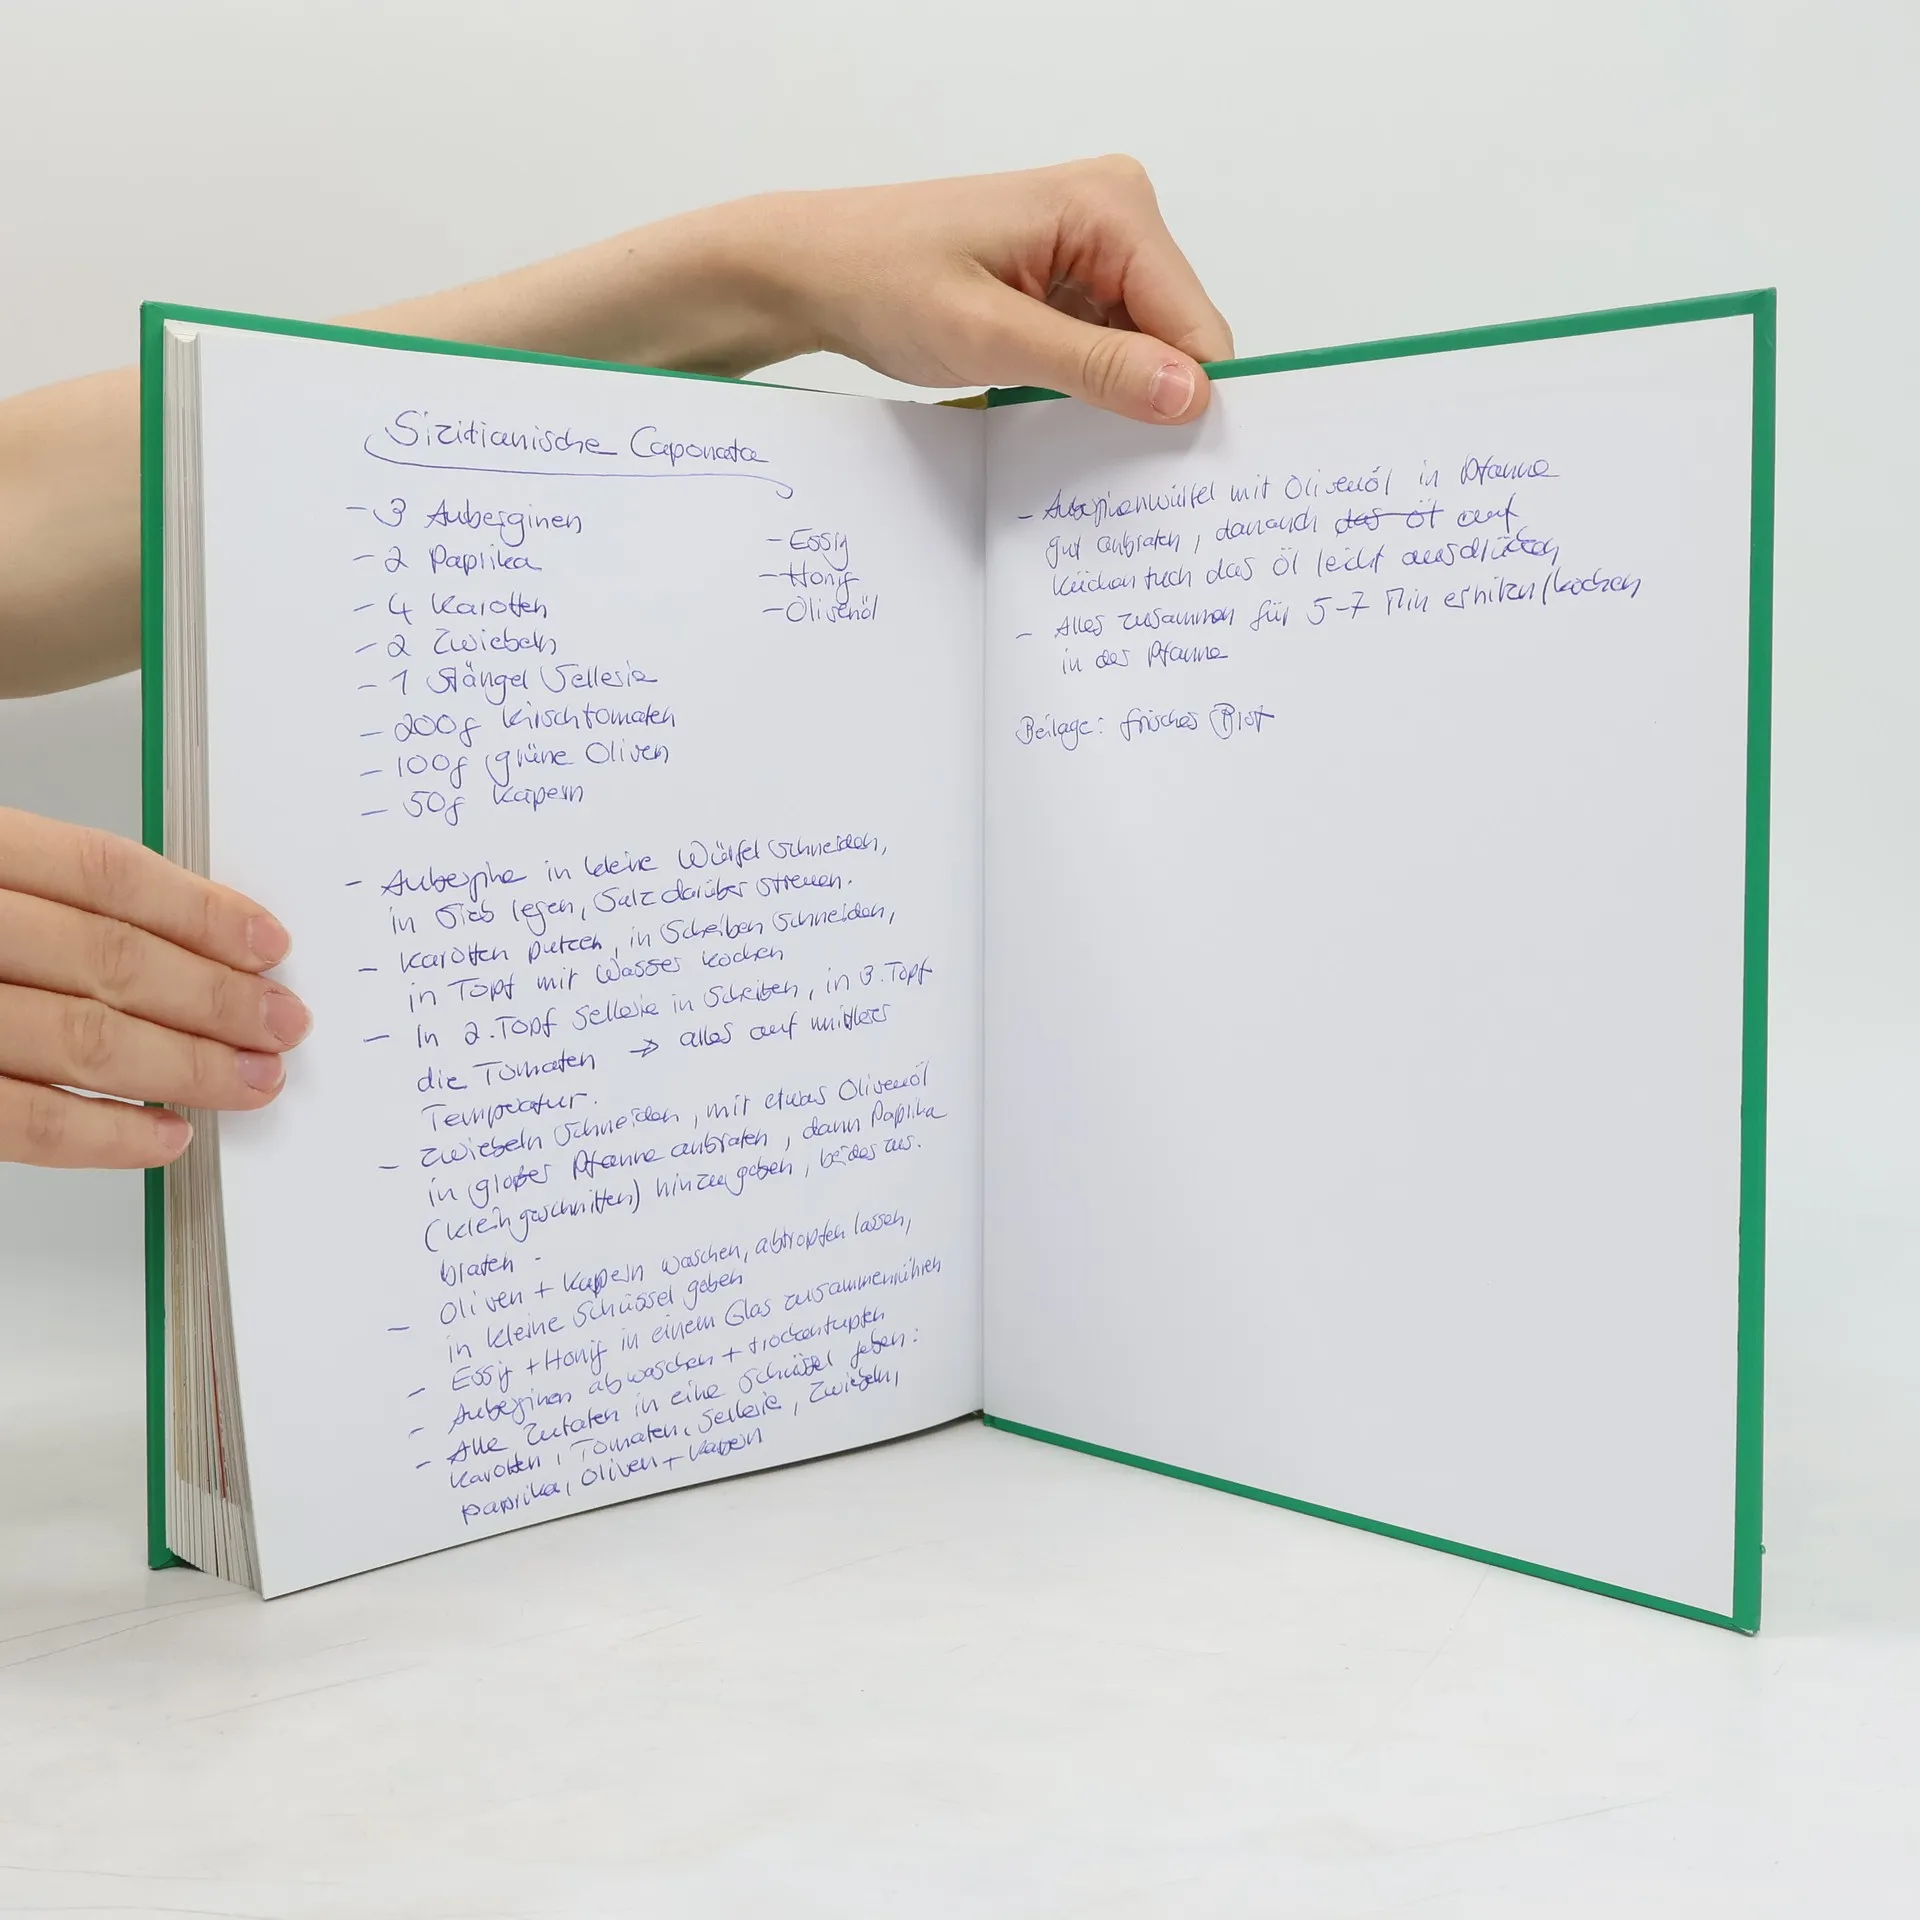 Sizilianische Caponata
- 3 Auberginen
- 2 Paprika
- 4 Karotten
- 2 Zwiebeln
- 1 Stängel Sellerie
- 200g Kirschtomaten
- 100g grüne Oliven
- 50g Kapern
- Essig
- Honig
- Olivenöl
- Aubergine in kleine Würfel schneiden,
in Sieb legen, Salz darüber streuen.
- Karotten putzen, in Scheiben schneiden,
in Topf mit Wasser kochen
- In 2. Topf Sellerie in Scheiben, in 3. Topf
die Tomaten → alles auf mittlerer
Temperatur.
- Zwiebeln schneiden, mit etwas Olivenöl
in großer Pfanne anbraten, dann Paprika
(klein geschnitten) hinzugeben, beides aus.
braten -
- Oliven + Kapern waschen, abtropfen lassen,
in kleine Schüssel geben
- Essig + Honig in einem Glas zusammenrühren
- Auberginen abwaschen + trockentupfen
- Alle Zutaten in eine Schüssel geben:
Karotten, Tomaten, Sellerie, Zwiebeln,
paprika, Oliven + Kapern
- Auberginenwürfel mit Olivenöl in Pfanne
gut anbraten, danach das Öl auf
Küchentuch das Öl leicht ausdrücken
- Alles zusammen für 5-7 Min erhitzen/kochen
in der Pfanne
Beilage: frisches Brot